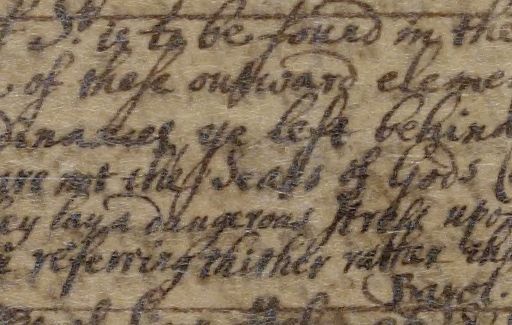 It is to be found in the
of these outward eleme
dinances, ye left behind
are not the Seals of Gods
ey lay a dangerous stress upo
referring thither rather th
Parol.